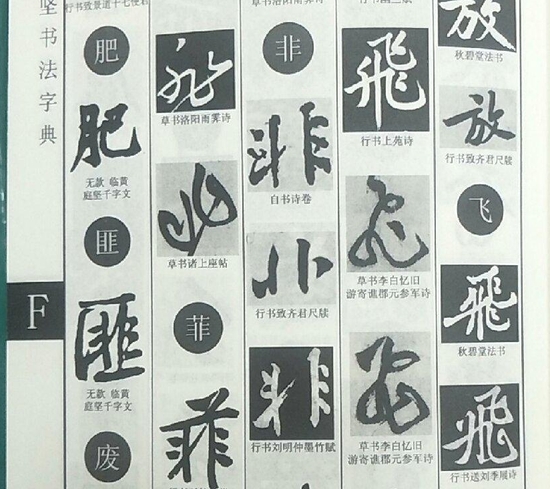 放
秋碧堂法书
放
行书致齐君尺牍
飞
飛
秋碧堂法书
飛
行书送刘季展诗
飛
行书上苑诗
飛
草书李白忆旧
游寄谯郡元参军诗
飛
草书李白忆旧
游寄谯郡元参军诗
草书洛阳雨霁诗
非
非
自书诗卷
非
行书致齐君尺牍
非
行书刘明仲墨竹赋
非
草书洛阳雨霁诗
非
草书诸上座帖
菲
菲
行书致景道十七使君
肥
肥
无款 临黄
庭坚千字文
匪
匪
无款 临黄
庭坚千字文
废
坚书法字典
F